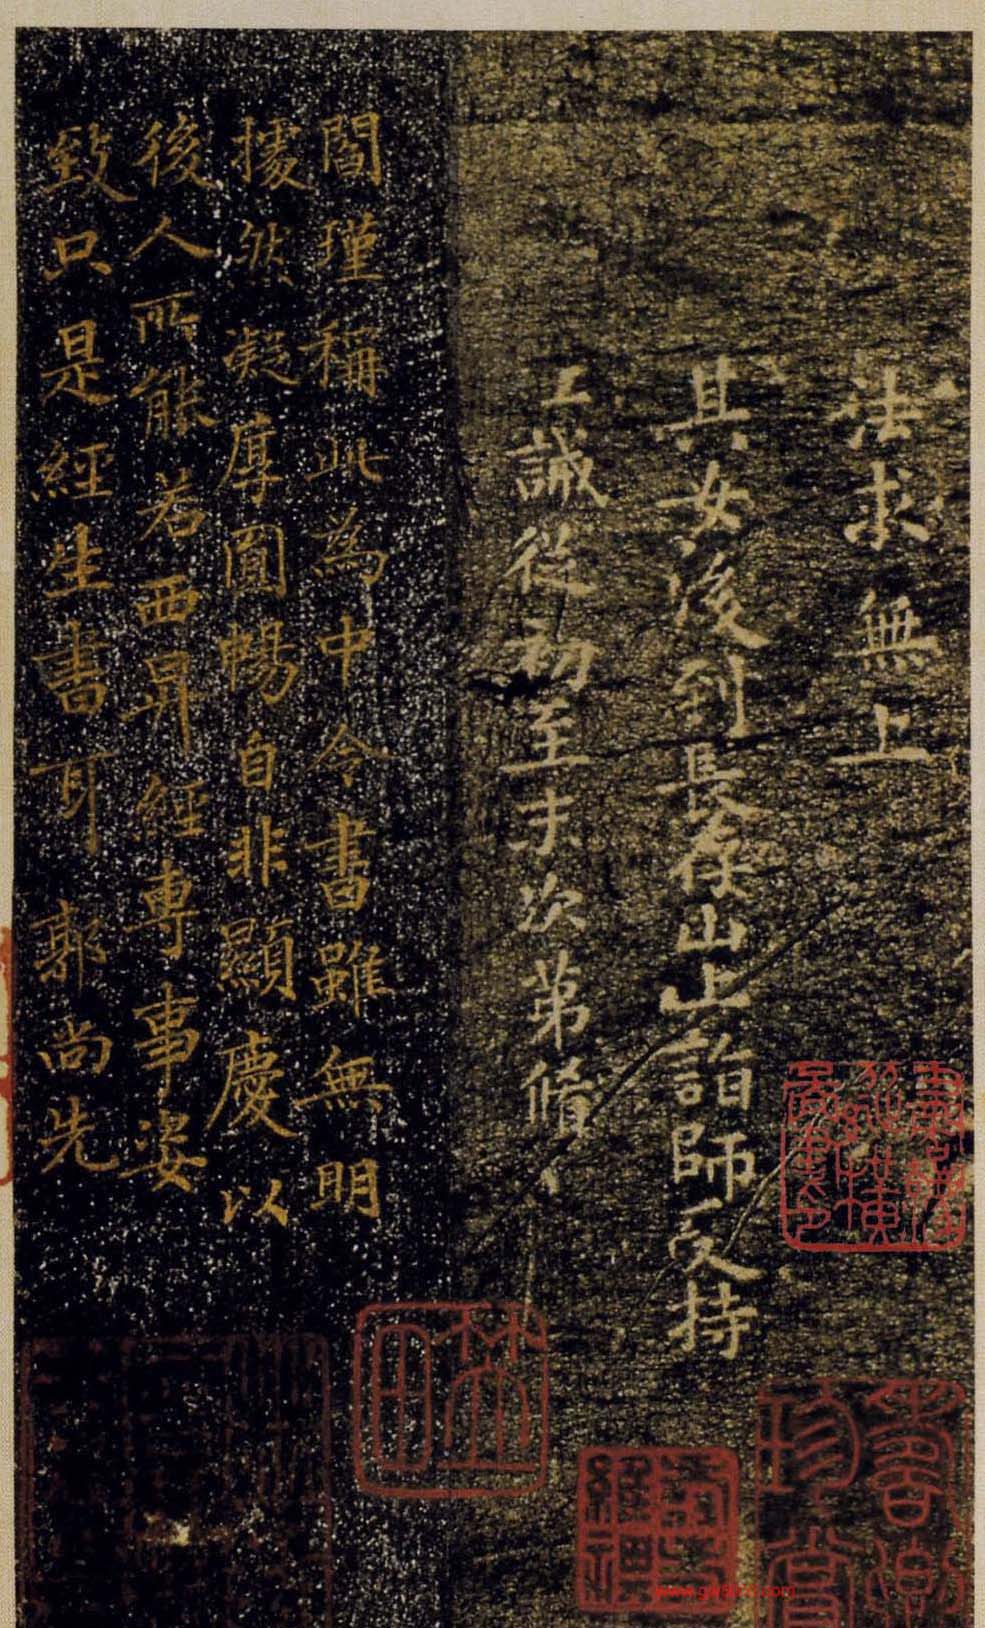 法求無上
其女後到長存山上詣師受持
上誡從初至末次第脩
閻瑾稱此為中令書雖無明
據然凝厚圓暢自非顯慶以
後人所能若西昇經專事姿
致只是經生書耳郭尚先
珍賞
www.g
.com